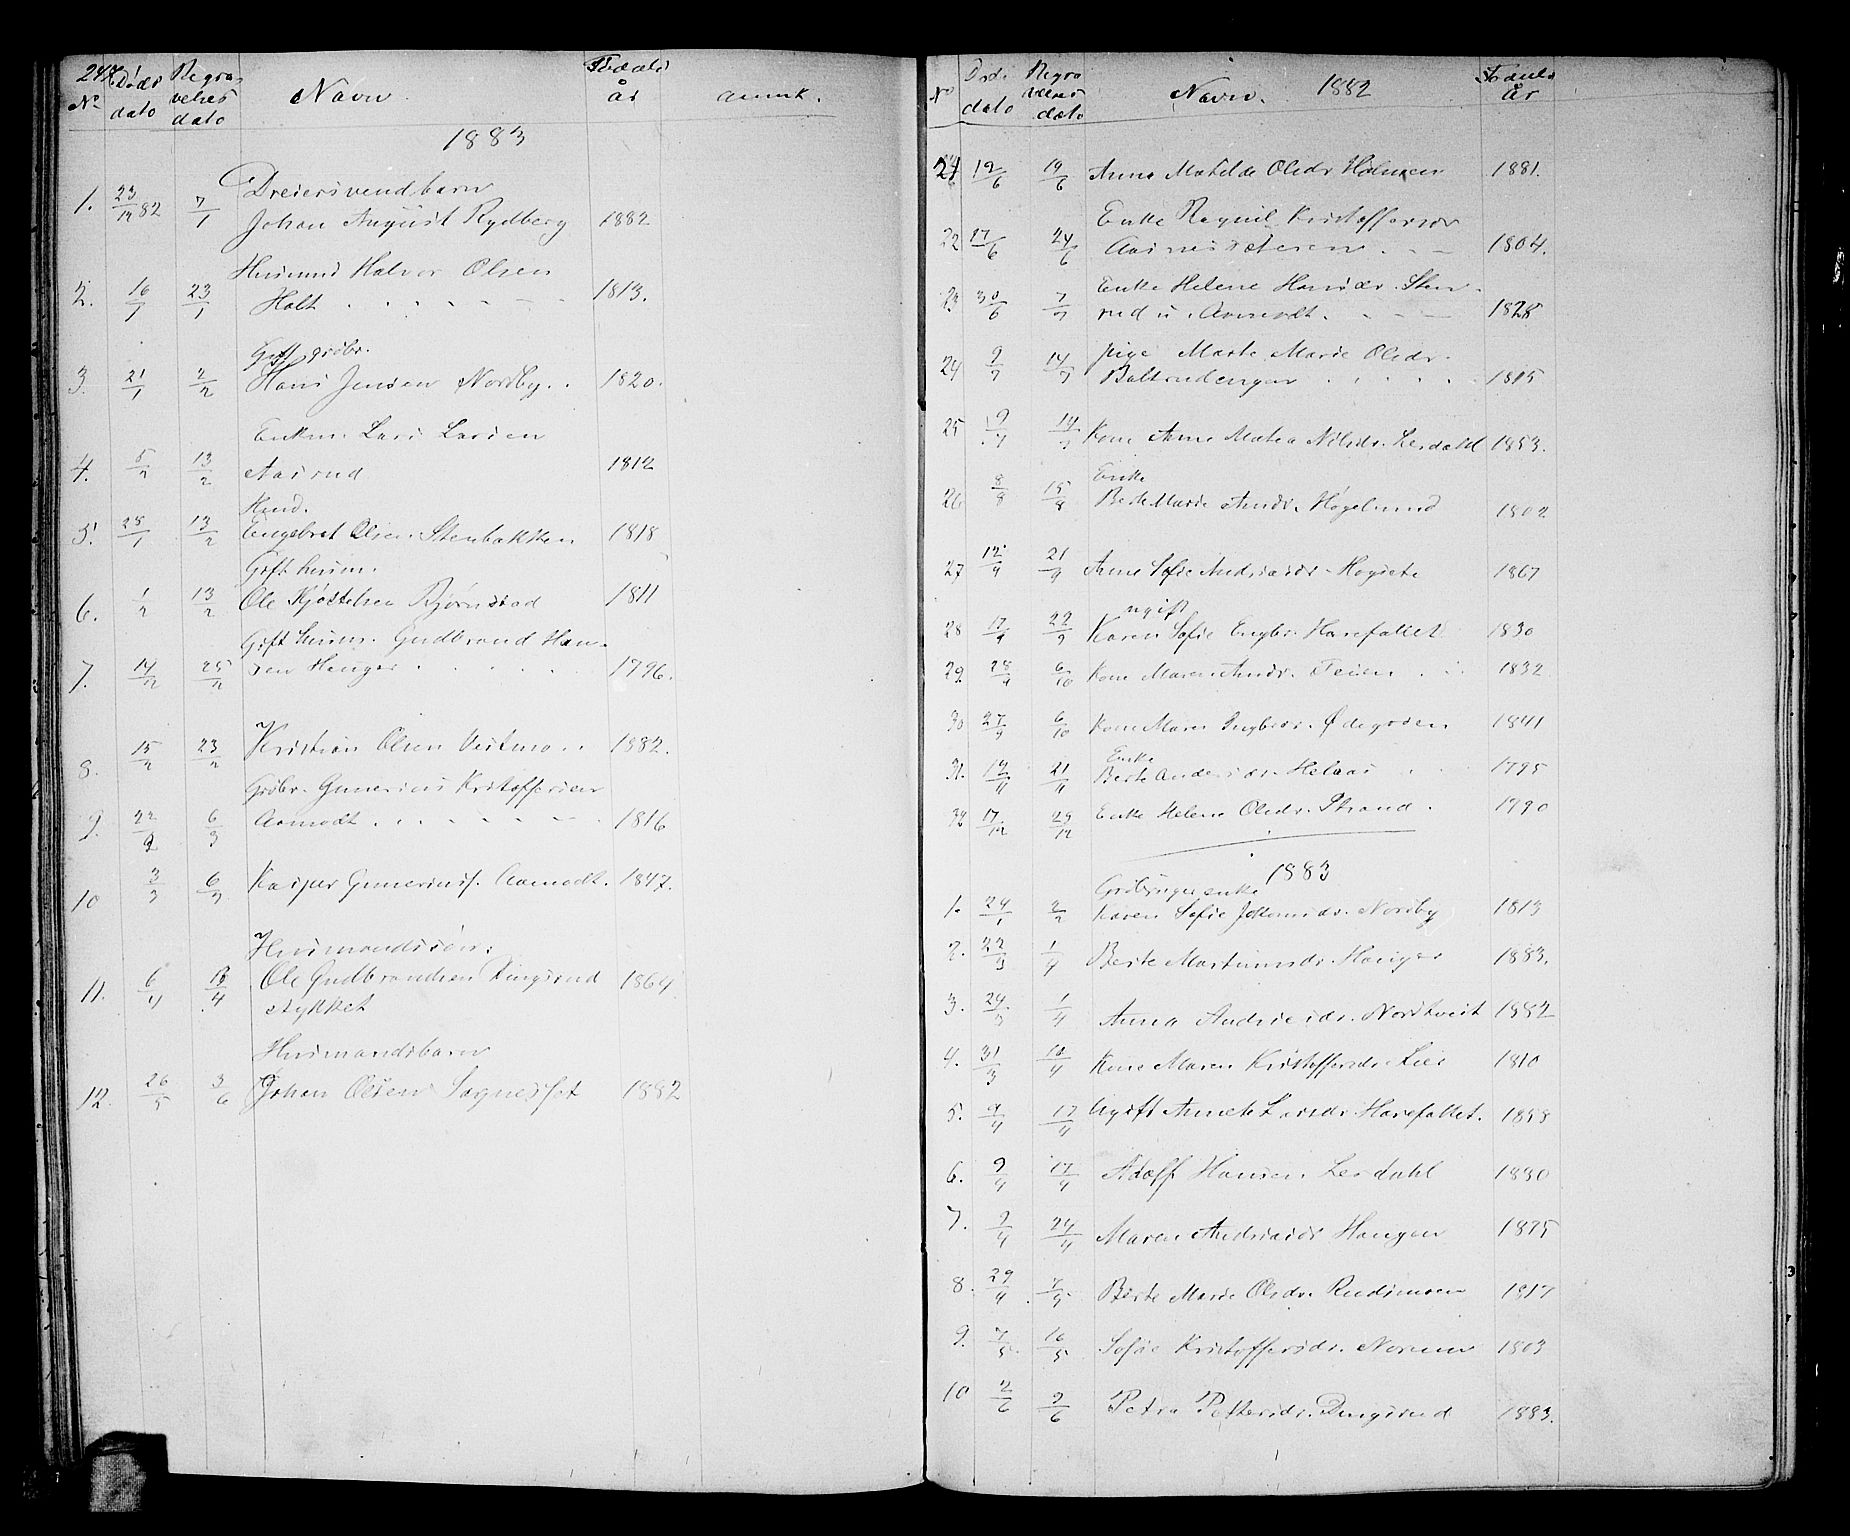 247
No Døds dato Begravelses dato Navn Fødsels år anmk.
1883
Dreiersvendbarn
1. 23/12 82 7/1 Johan August Rydberg 1882
Husmnd Halvor Olsen
2. 16/1 23/1 Holt 1813.
Gift grdbr.
3. 21/1 2/2 Hans Jensen Nordby 1820.
Enkem. Lars Larsen
4. 5/2 13/2 Aasrud 1812
Husmd.
5. 28/1 13/2 Engebret Olsen Stenbakken 1818
Gift husm.
6. 1/2 13/2 Ole Kjøstelsen Bjørnstad 1811
Gift husm. Gudbrand Han-
7. 14/2 25/2 sen Hauger 1796.
8. 15/2 23/2 Kristian Olsen Vestmo 1882.
Grdbr. Gunerius Kristoffersen
9. 22/2 6/3 Aamodt 1816
10 3/3 6/3 Kasper Gunerius. Aamodt. 1847.
Husmandssøn:
11. 6/4 13/4 Ole Gudbrandsen Ringsrud 1864.
stykket
Husmandsbarn
12. 26/5 3/6 Johan Olsen Sagneset 1882
No Døds dato Begravelses dato Navn. 1882 Fødsels år
21 12/6 19/6 Anne Matilde Olsdr Holmsen 1881.
Enke Ragnil Kristoffersdr
22 17/6 24/6 Aasnessæteren 1804.
Enke Helene Hansdr. Sten-
23 30/6 7/7 rud u. Aamodt. 1828
pige Marte Marie Olsdr.
24 9/7 14/7 Baltrudengen 1815
25 9/7 14/7 Kone Anne Matea Nilsdr. Lerdahl 1853.
Enke
26 8/8 15/8 Berte Marie Andr. Høgelmund 1802
27 12/9 21/9 Anne Sofie Andreasdr. Høgsete 1867
ugift
28 17/9 22/9 Karen Sofie Engbr. Harefallet 1830
29. 28/9 6/10 Kone Maren Andr. Teien 1832
30 27/9 6/10 Kone Maren Ingbrdr. Ødegården 1841
Enke
31. 14/11 21/11 Berte Andersdr. Helaas 1795
32 17/12 29/12 Enke Helene Olsdr. Strand. 1790
1883
Grdbrugerenke
1. 24/1 2/2 Karen Sofie Johansdr. Nordby 1813
2. 22/3 1/4 Berte Martinusdr. Hauger 1883.
3. 24/3 1/4 Anna Andreasdr. Nordtveit 1882
4. 31/3 10/4 Kone Maren Kristoffersdr. Lier 1810
5. 9/4 17/4 Ugift Anneth Larsdr. Harefallet. 1858
6. 9/4 17/4 Adolf Hansen Lerdahl 1880
7. 9/4 24/4 Maren Andreasdr Haugen 1875
8. 29/4 7/5 Berte Marie Olsdr. Rudsmoen 1817
9. 7/5 16/5 Sofie Kristoffersdr. Noreen 1803
10 2/6 9/6 Petra Pettersdr. Dingsrud 1883.